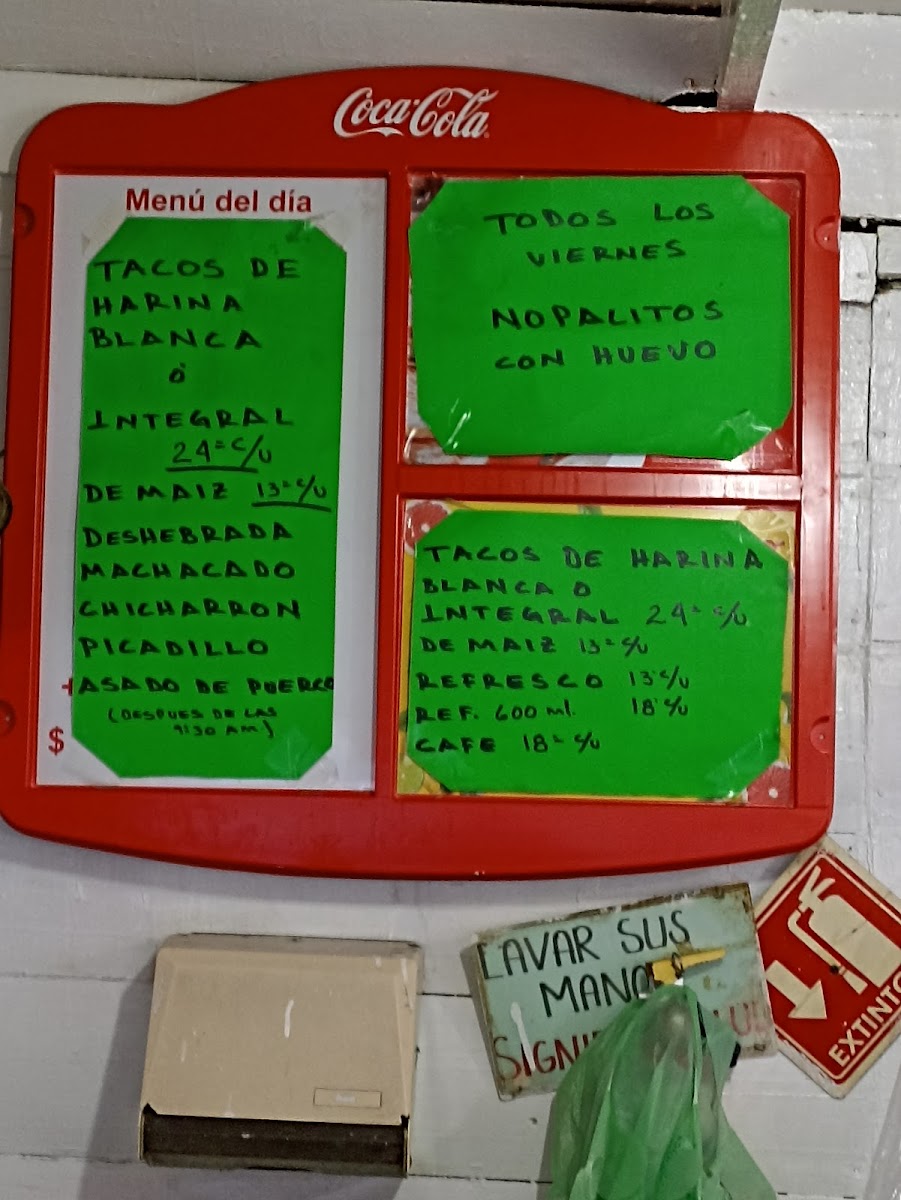 Coca-Cola
Menú del día
TACOS DE
HARINA
BLANCA
Ó
INTEGRAL
24= c/u
DE MAIZ 13= c/u
DESHEBRADA
MACHACADO
CHICHARRON
PICADILLO
ASADO DE PUERCO
(DESPUES DE LAS
9:30 AM)
$
TODOS LOS
VIERNES
NOPALITOS
CON HUEVO
TACOS DE HARINA
BLANCA O
INTEGRAL 24= c/u
DE MAIZ 13= c/u
REFRESCO 13= c/u
REF. 600 ml. 18= c/u
CAFE 18= c/u
LAVAR SUS
EXTINTO